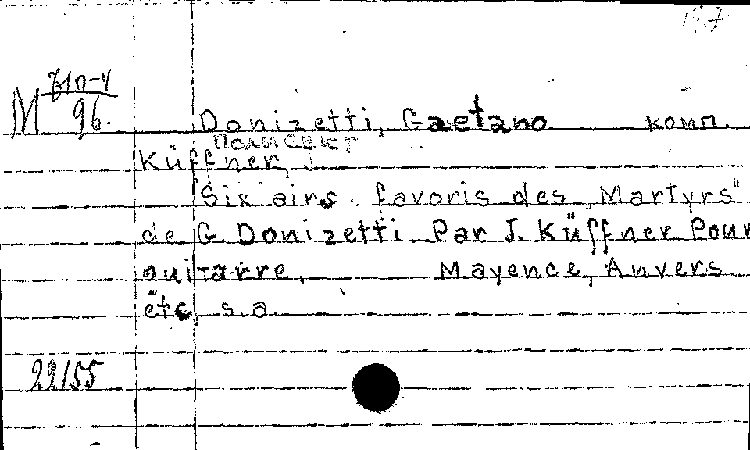 М 710-4
96.
Donizetti, Gaetano комп.
Küffner, J.
"Six airs favoris des "Martyrs"
de G. Donizetti. Par J. Küffner Pour
guitarre, Mayence, Anvers
etc, s.a.
22155